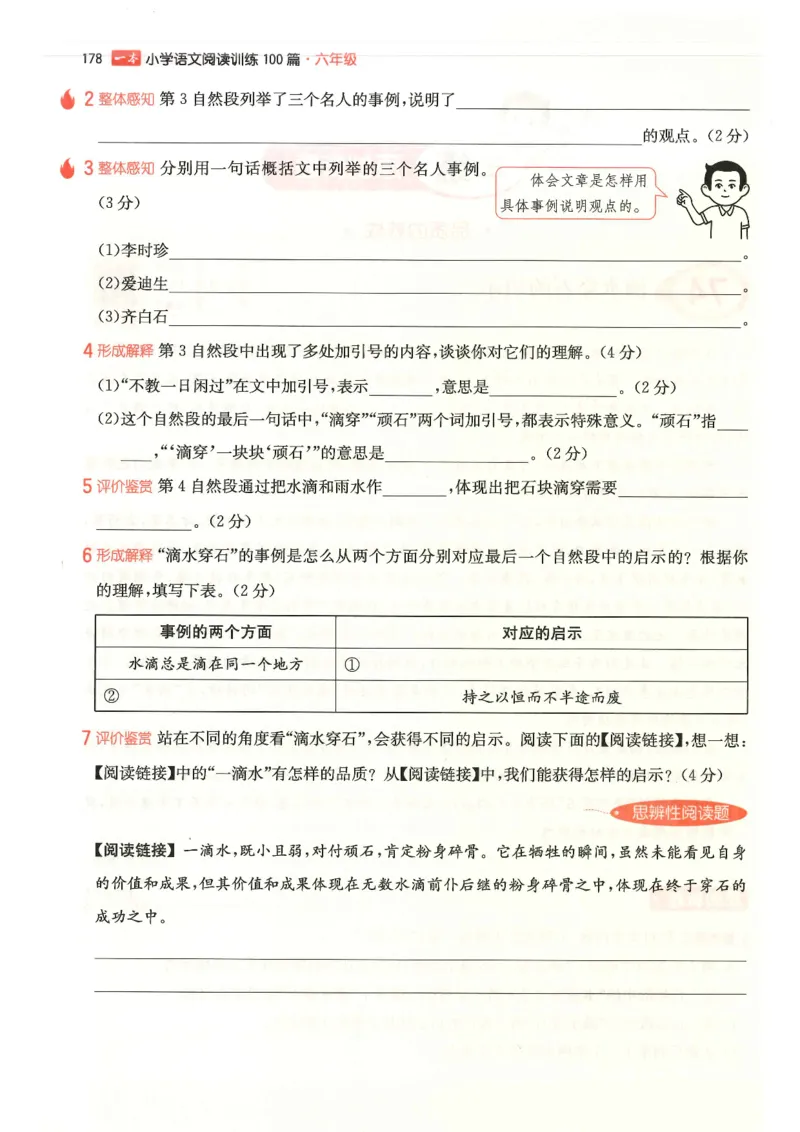 178 一本 小学语文阅读训练100篇·六年级
2 整体感知 第3自然段列举了三个名人的事例,说明了____________
____________的观点。(2分)
3 整体感知 分别用一句话概括文中列举的三个名人事例。
(3分)
体会文章是怎样用
具体事例说明观点的。
(1)李时珍____________。
(2)爱迪生____________。
(3)齐白石____________。
4 形成解释 第3自然段中出现了多处加引号的内容,谈谈你对它们的理解。(4分)
(1)“不教一日闲过”在文中加引号,表示______,意思是____________。(2分)
(2)这个自然段的最后一句话中,“滴穿”“顽石”两个词加引号,都表示特殊意义。“顽石”指___
___,“‘滴穿’一块块‘顽石’”的意思是____________。(2分)
5 评价鉴赏 第4自然段通过把水滴和雨水作______,体现出把石块滴穿需要____________
_________。(2分)
6 形成解释 “滴水穿石”的事例是怎么从两个方面分别对应最后一个自然段中的启示的?根据你
的理解,填写下表。(2分)
事例的两个方面 对应的启示
水滴总是滴在同一个地方 ①
② 持之以恒而不半途而废
7 评价鉴赏 站在不同的角度看“滴水穿石”,会获得不同的启示。阅读下面的【阅读链接】,想一想:
【阅读链接】中的“一滴水”有怎样的品质?从【阅读链接】中,我们能获得怎样的启示?(4分)
思辨性阅读题
【阅读链接】一滴水,既小且弱,对付顽石,肯定粉身碎骨。它在牺牲的瞬间,虽然未能看见自身
的价值和成果,但其价值和成果体现在无数水滴前仆后继的粉身碎骨之中,体现在终于穿石的
成功之中。